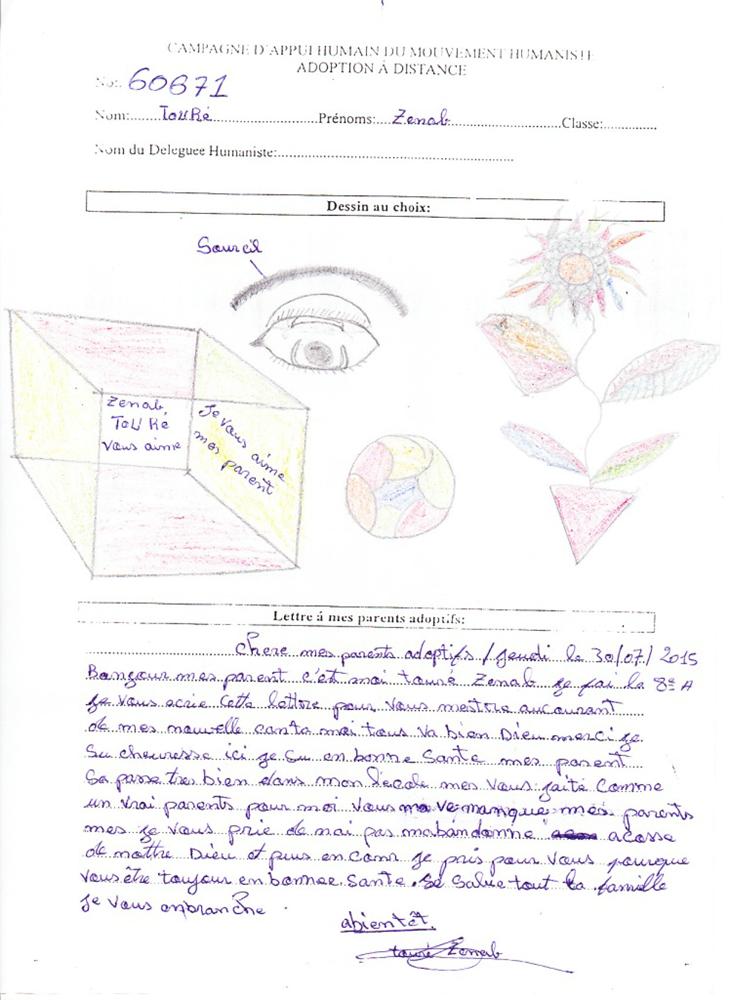 CAMPAGNE D'APPUI HUMAIN DU MOUVEMENT HUMANISTE
ADOPTION À DISTANCE
No: 60671
Nom: ToURé Prénoms: Zenab Classe:
Nom du Deleguee Humaniste:
Dessin au choix:
Sourcil
Zenab,
ToURé
vous aime
Je vous aime
mes parent
Lettre à mes parents adoptifs:
Chere mes parents adoptifs / Jeudi le 30/07/2015
Bonzour mes parent c'est moi touré Zenab ze fai la 8e A
ze vous ecrie cette lettre pour vous mestre au courant
de mes nouvelle canta moi tous va bien Dieu merci ze
Su cheuresse ici ze Su en bonne Sante mes parent
Sa passe tres bien dans mon l'ecole mes vous faite Comme
un vrai parents pour moi vous manque mes parents
mes ze vous prie de nai pas mabandanne acosse
de nottre Dieu et puis encour je pris pour vous pourque
vous être toujour en bonnee Sante. Se Salue tout la famille
Je vous anbranche.
abientêt.
touré Zenab